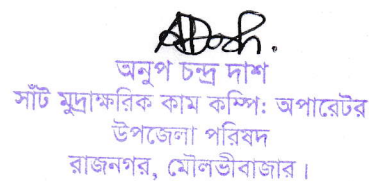 অনুপ চন্দ্র দাশ
সাঁট মুদ্রাক্ষরিক কাম কম্পি: অপারেটর
উপজেলা পরিষদ
রাজনগর, মৌলভীবাজার।